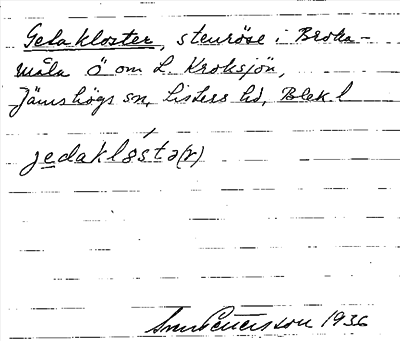 Getakloster, stenröse i Broka-
måla Ö om L. Kroksjön,
Jämshögs sn, Listers hd, Blek l
jedaklósta(r)
1936